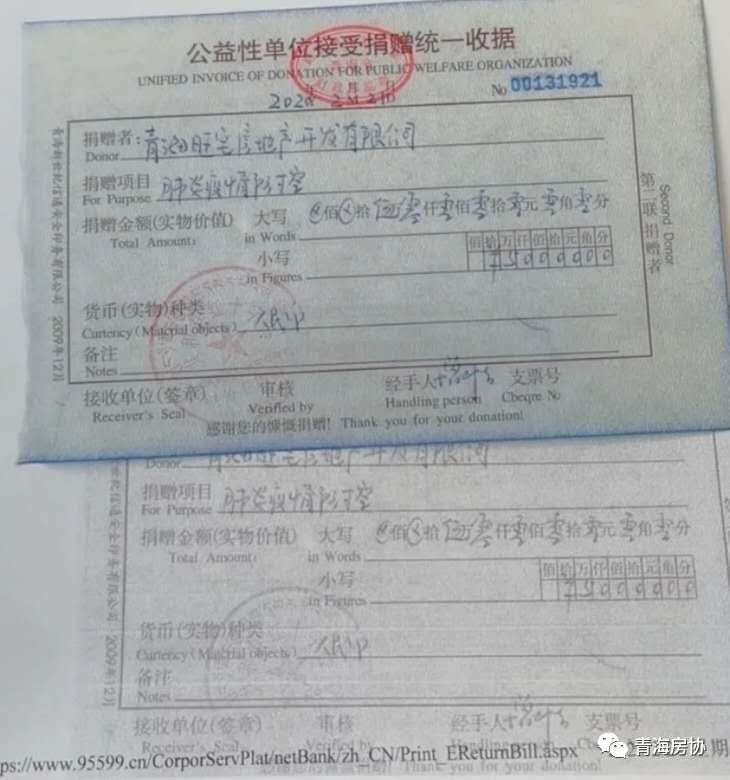 公益性单位接受捐赠统一收据
UNIFIED INVOICE OF DONATION FOR PUBLIC WELFARE ORGANIZATION
No 00131921
2020年2月2日
捐赠者：青海旺宅房地产开发有限公司
Donor
捐赠项目 肺炎疫情防控
For Purpose
捐赠金额(实物价值) 大写 佰 拾 伍万零仟零佰零拾零元零角零分
Total Amount: in Words
小写 佰拾万仟佰拾元角分
in Figures ¥5000000
货币(实物)种类 人民币
Currency (Material objects)
备注
Notes
接收单位(签章) 审核 经手人 支票号
Receiver's Seal Verified by Handling person Cheqre No
感谢您的慷慨捐赠! Thank you for your donation!
第二联捐赠者
Second Donor
2009年12月
Donor 青海旺宅房地产开发有限公司
捐赠项目 肺炎疫情防控
For Purpose
捐赠金额(实物价值) 大写 佰 拾 伍万零仟零佰零拾零元零角零分
Total Amount: in Words
小写 佰拾万仟佰拾元角分
in Figures ¥5000000
货币(实物)种类 人民币
Currency (Material objects)
备注
Notes
2009年12月
接收单位(签章) 审核 经手人 支票号
Receiver's Seal Verified by Handling
ps://www.95599.cn/CorporServPlat/netBank/zh_CN/Print_EReturnBill.aspx
青海房协